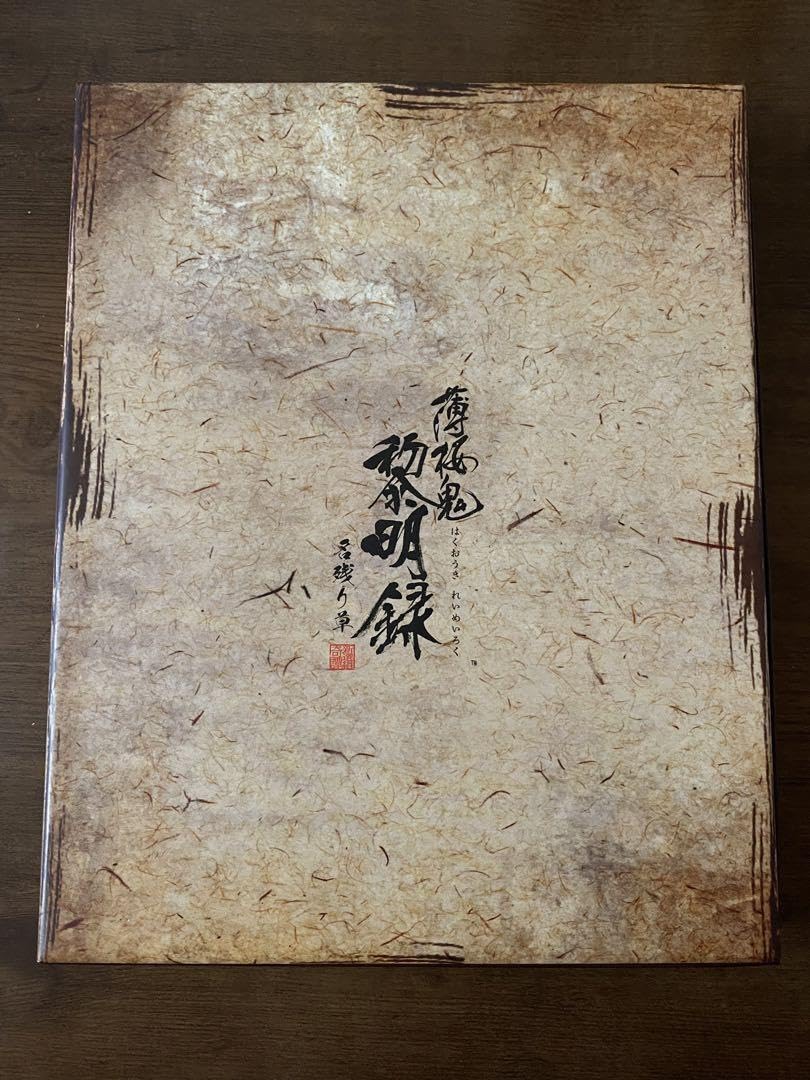 薄桜鬼
はくおうき れいめいろく
黎明録
名残り草
TM